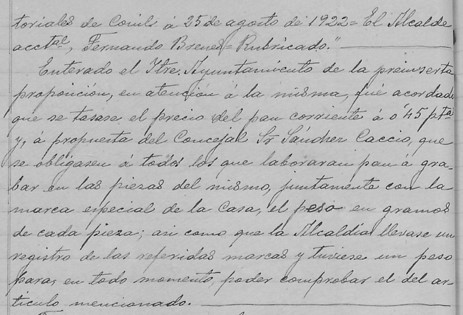 toriales de Conil, á 25 de agosto de 1922= El Alcalde
acctal, Fernando Brenes= Rubricado."
Enterado el Iltre. Ayuntamiento de la preinserta
proposición, en atención á la misma, fué acordado
que se tasase, el precio del pan corriente á 0'45 ptas
y, á propuesta del Concejal Sr Sánchez Caccio, que
se obligasen á todos los que laboraran pan á gra-
bar en las piezas del mismo, juntamente con la
marca especial de la Casa, el peso en gramos
de cada pieza; asi como que la Alcaldía llevase un
registro de las referidas marcas y tuviese un peso
para, en todo momento, poder comprobar el del ar-
tículo mencionado.